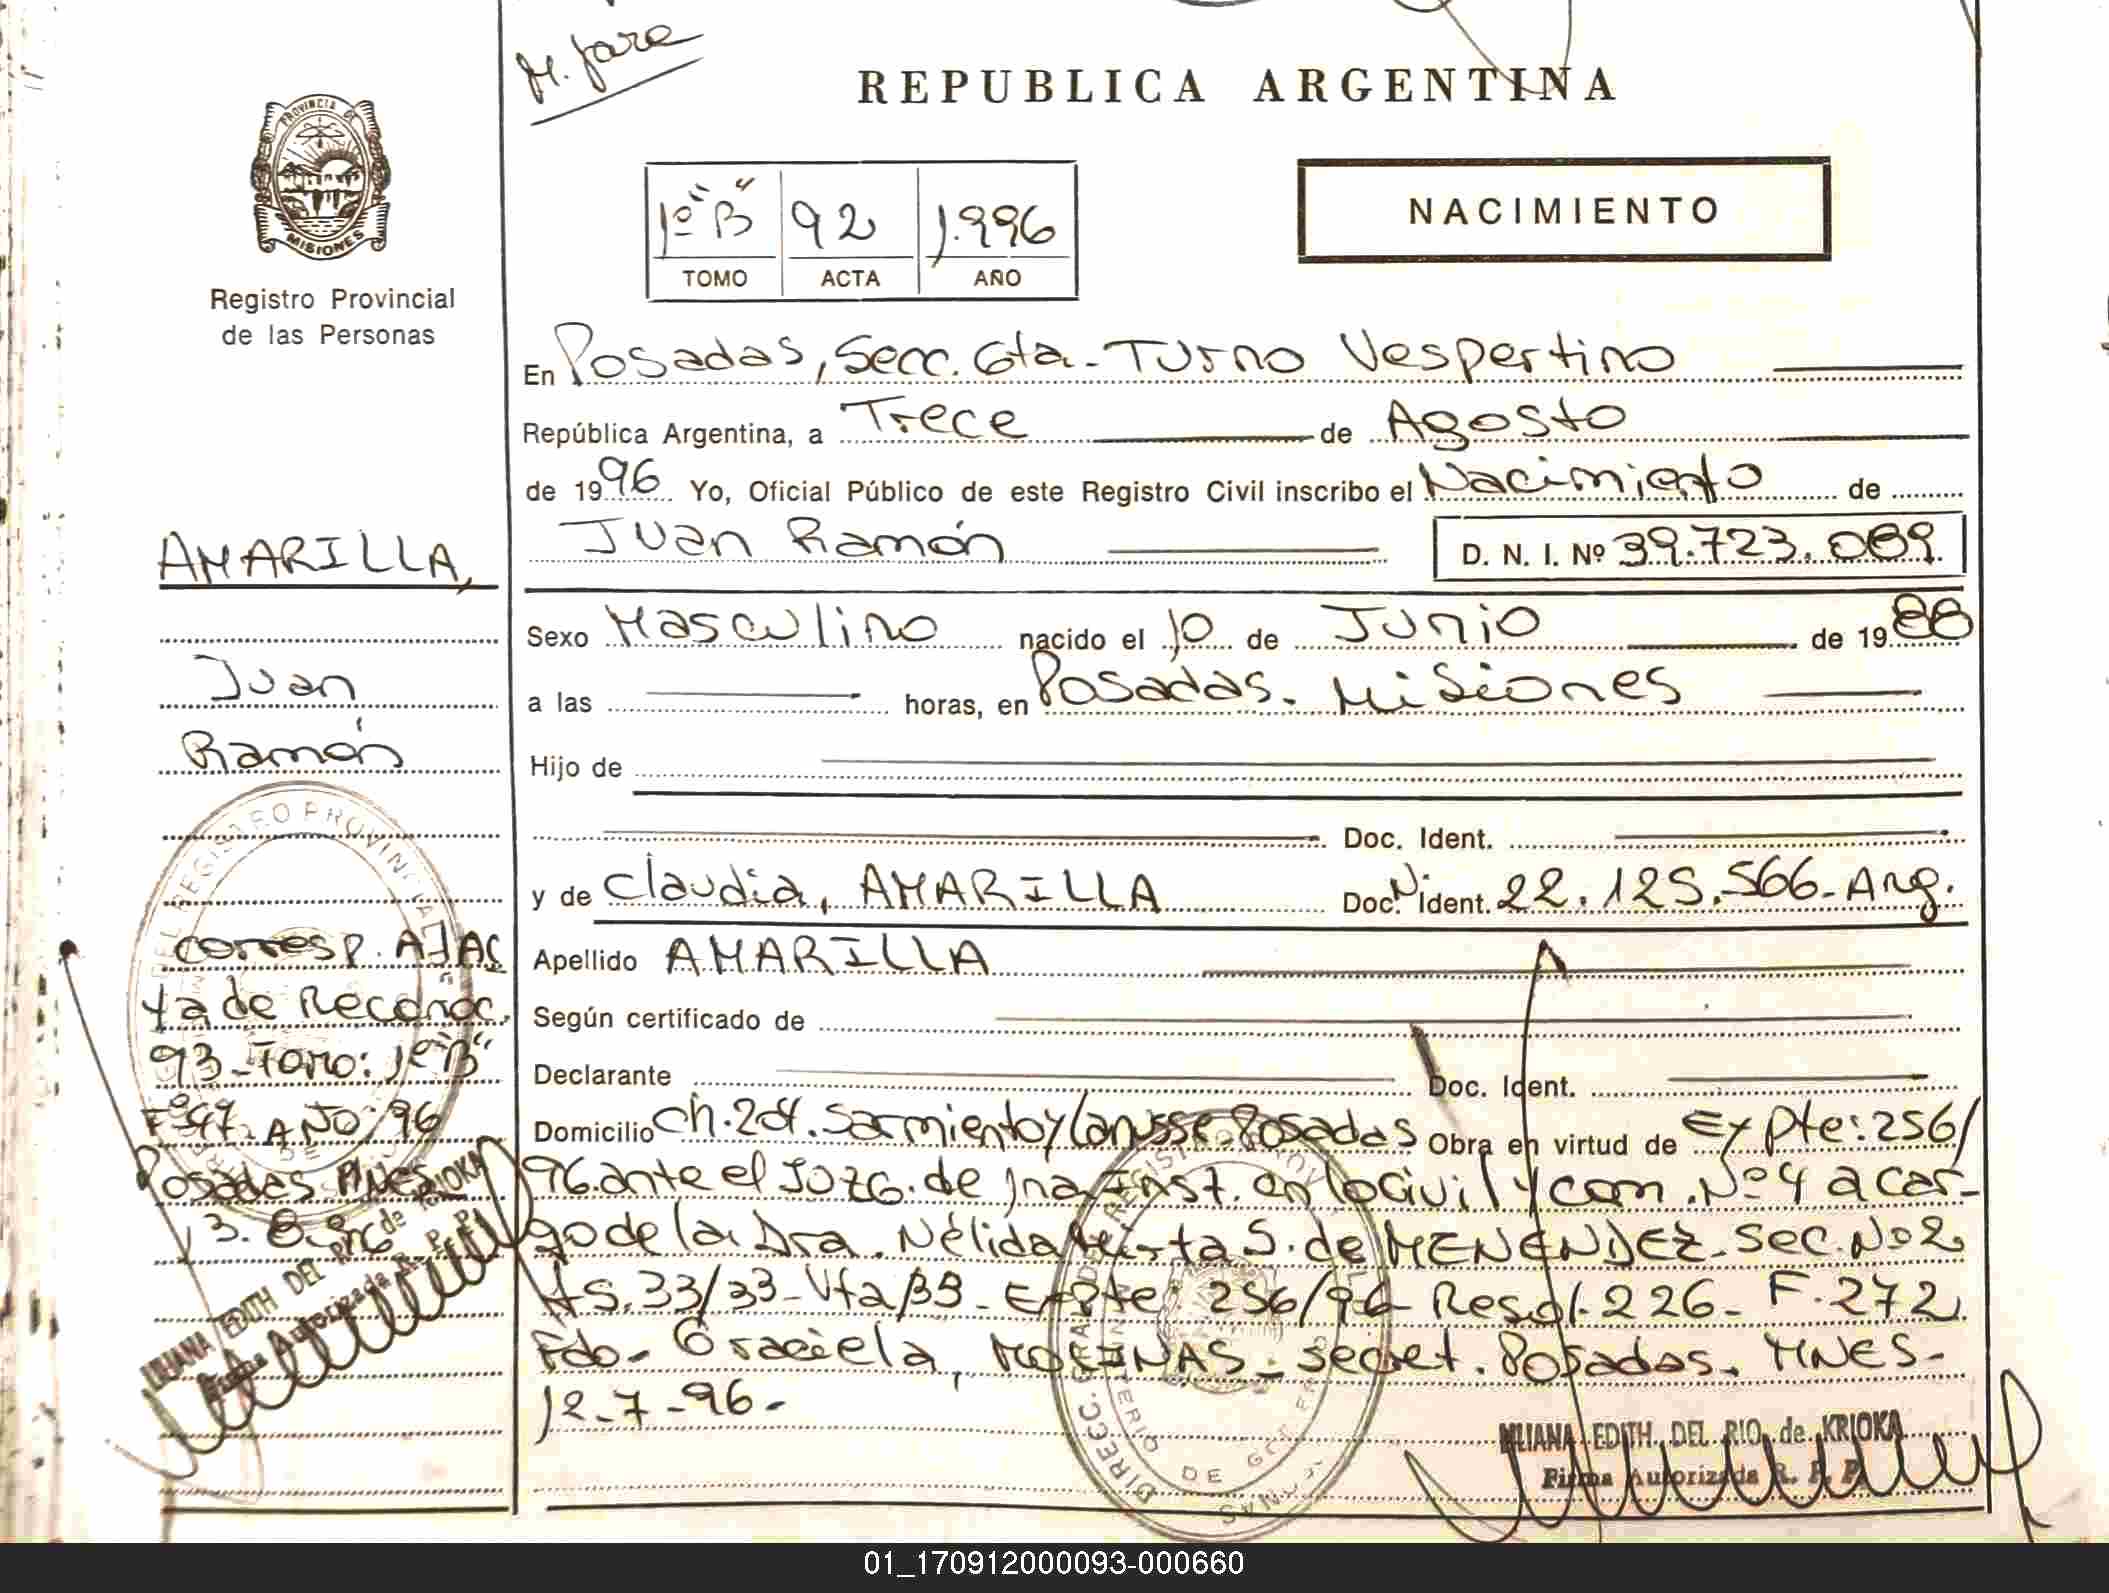 M. Jara
REPUBLICA ARGENTINA
PROVINCIA DE
MISIONES
Registro Provincial
de las Personas
1º "B" 92 1.996
TOMO ACTA AÑO
NACIMIENTO
En Posadas, Secc. 6ta - Turno Vespertino
República Argentina, a Trece de Agosto
de 1996 Yo, Oficial Público de este Registro Civil inscribo el Nacimiento de
Juan Ramón D. N. I. Nº 39.723.089.
Sexo Masculino nacido el 10 de Junio de 1988
a las horas, en Posadas. Misiones
Hijo de
Doc. Ident.
y de Claudia, AMARILLA Doc. N ident. 22.125.566-Arg.
Apellido AMARILLA
Según certificado de
Declarante Doc. Ident.
Domicilio Ch. 201. Sarmiento y Lanusse-Posadas Obra en virtud de Expte: 256/
96. ante el Juzg. de 1ra Inst. en lo Civil y Com. Nº 4 a car-
go de la Dra. Nélida S. de MENENDEZ. Sec. Nº 2
AS. 33/33-Vta/39-Expte: 256/96-Resol. 226-F. 272
Fdo- Graciela, MOLINAS-Secret. Posadas. MNES-
12-7-96-
LILIANA EDITH DEL RIO de KRIOKA
Firma Autorizada R. P. P.
AMARILLA,
Juan
Ramón
corresp. A
ta de Reconoc.
93-Tomo: 1º "B"
Fº 47. AÑO: 96
Posadas MNES
13. 8. 96
LILIANA EDITH DEL RIO de KRIOKA
Firma Autorizada R. P. P.
01_170912000093-000660